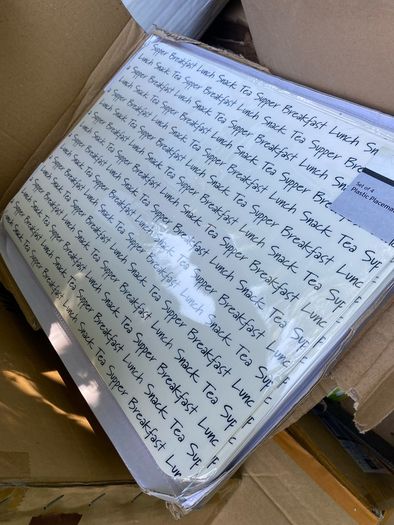 Supper Breakfast Lunch Snack Tea Supper Breakfast Lunch Sn
Lunch Snack Tea Supper Breakfast Lunch Snack Tea Supper Bre
Supper Breakfast Lunch Snack Tea Supper Breakfast Lunch Sn
Lunch Snack Tea Supper Breakfast Lunch Snack Tea Supper Bre
Supper Breakfast Lunch Snack Tea Supper Breakfast Lunc
Lunch Snack Tea Supper Breakfast Lunch Snack Tea Sup
Supper Breakfast Lunch Snack Tea Supper Breakfast Lunc
Lunch Snack Tea Supper Breakfast Lunch Snack Tea Sup
Supper Breakfast Lunch Snack Tea Supper Breakfast Lunc
Lunch Snack Tea Supper Breakfast Lunch Snack Tea Sup
Supper Breakfast Lunch Snack Tea Supper Breakfast Lunc
Lunch Snack Tea Supper Breakfast Lunch Snack Tea Sup
Supper Breakfast Lunch Snack Tea Supper Breakfast Lun
Set of 4
Plastic Placema